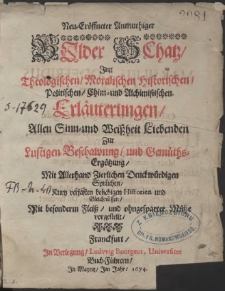 Neu-Eröffneter Anmuthiger
Bilder Schatz/
Zur
Theologischen/ Moralischen Historischen/
Politischen/ Chim- und Alchimistischen
Erläuterungen/
Allen Sinn- und Weißheit Liebenden
Zur
Lustigen Beschawung/ und Gemüths-
Ergötzung/
Mit Allerhand Zierlichen Denckwürdigen
Sprüchen/
Kurtz verfaßten beliebigen Historien und
Gleichnüssen/
Mit besonderm Fleiß/ und ohngesparter Mühe
vorgestellt/
Franckfurt/
In Verlegung/ Ludwig
Buch-Führern/
In Mayntz/ Im Jahr: 1674.